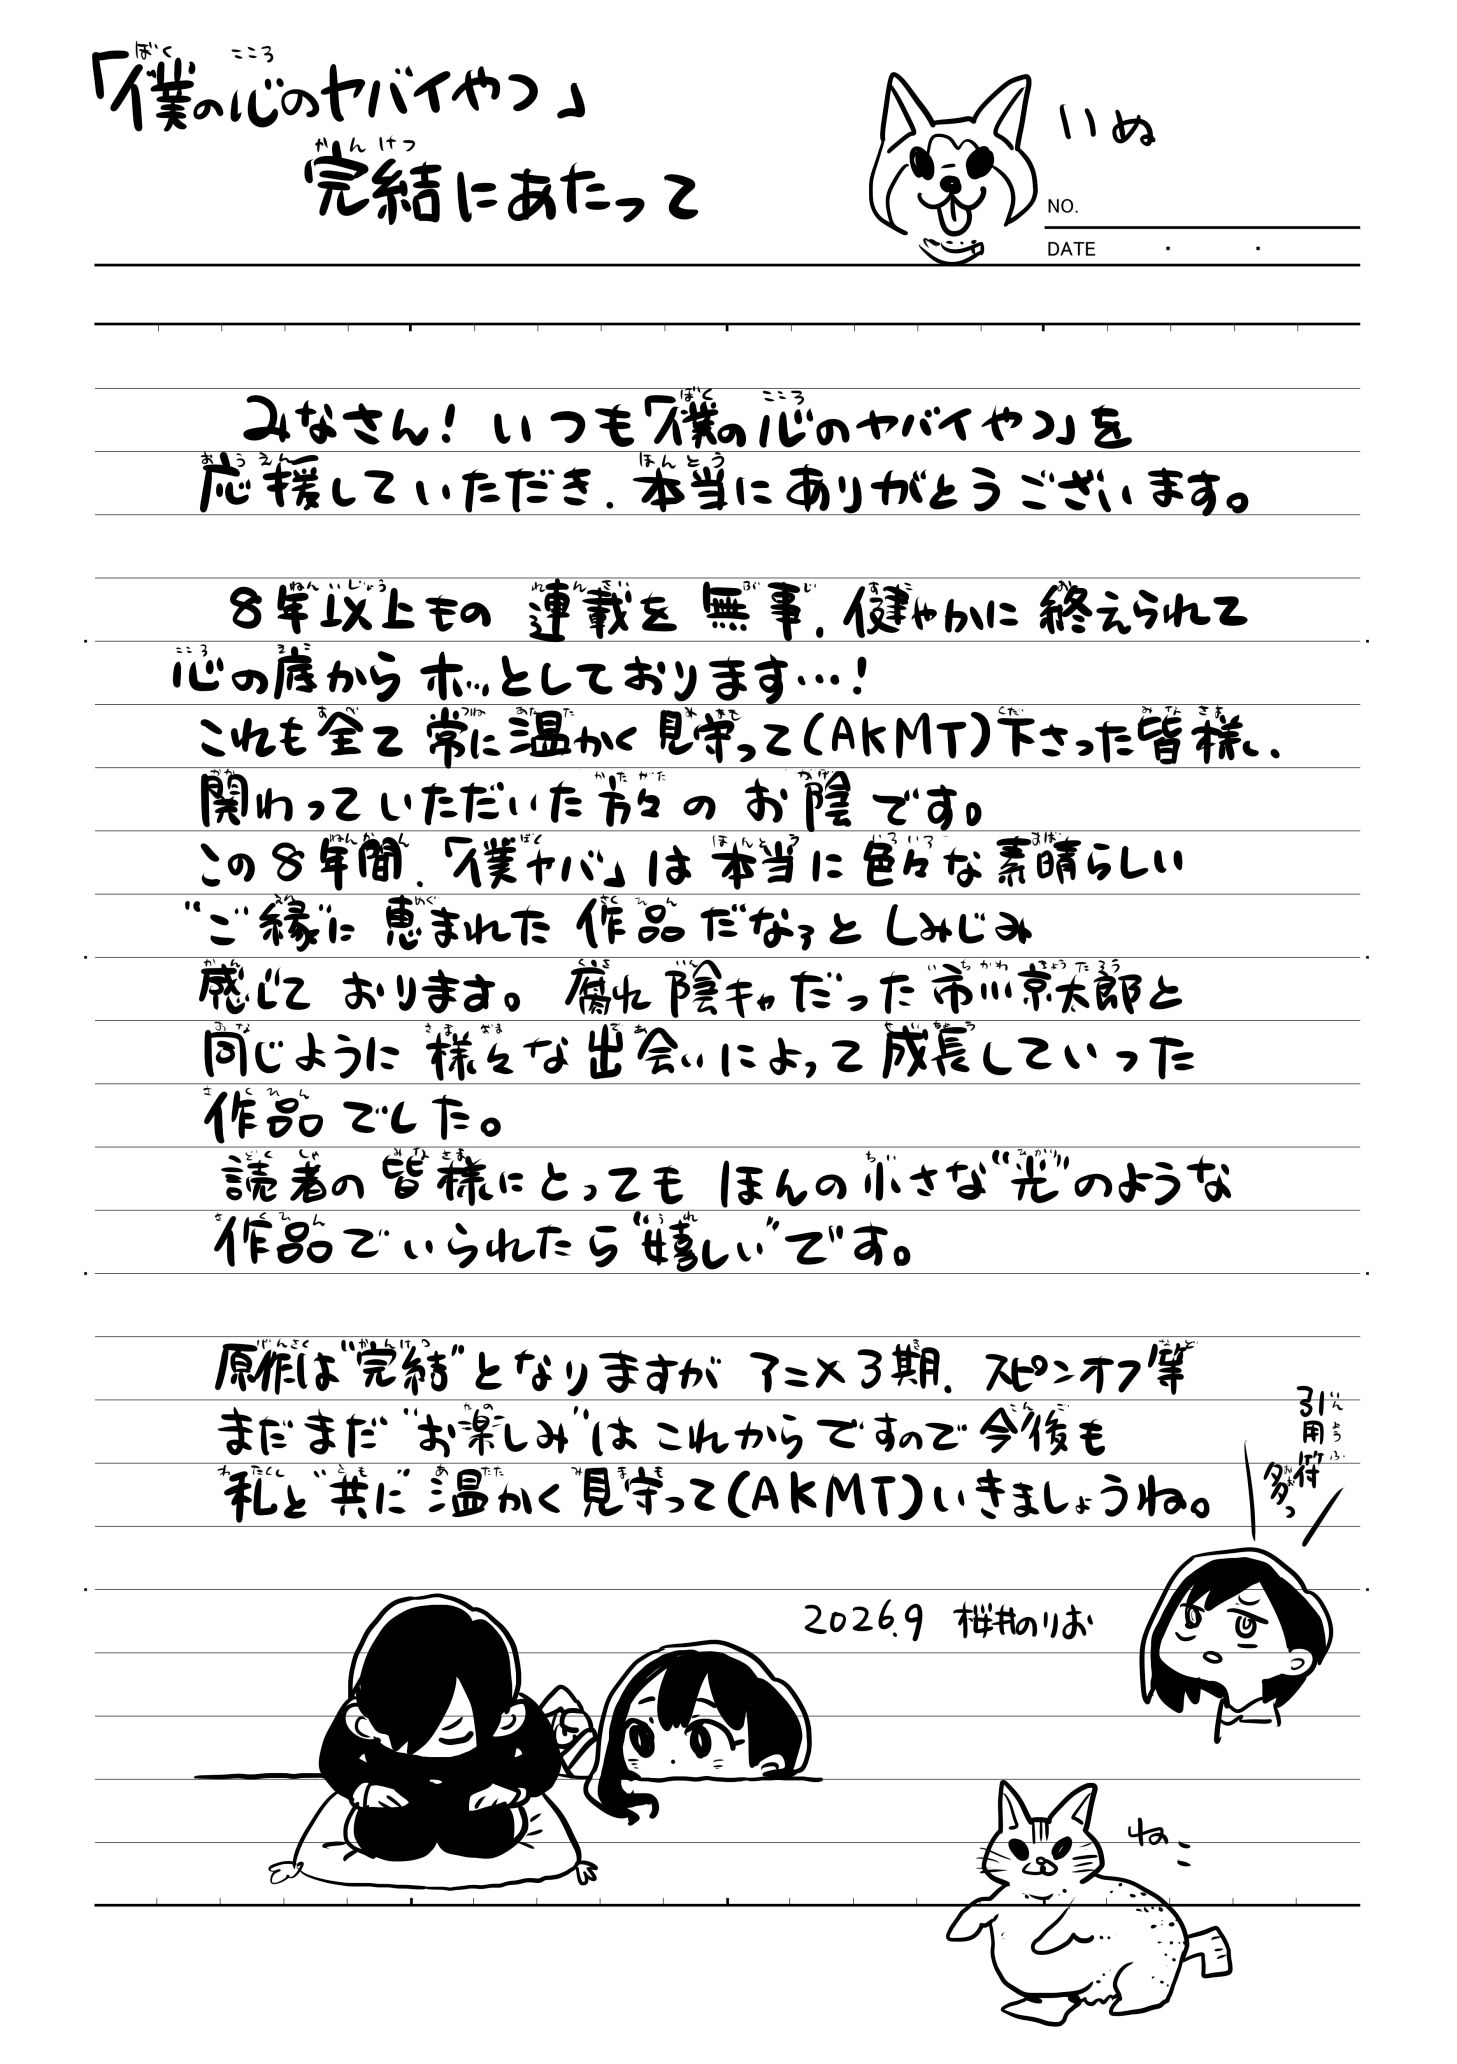 「僕の心のヤバイやつ」
完結にあたって
いぬ
NO.
DATE ・ ・
みなさん！いつも「僕の心のヤバイやつ」を
応援していただき、本当にありがとうございます。
8年以上もの連載を無事、健やかに終えられて
心の底からホッとしております…！
これも全て常に温かく見守って(AKMT)下さった皆様、
関わっていただいた方々のお陰です。
この8年間、「僕ヤバ」は本当に色々な素晴らしい
“ご縁”に恵まれた作品だなぁとしみじみ
感じております。腐れ陰キャだった市川京太郎と
同じように様々な出会いによって成長していった
作品でした。
読者の皆様にとってもほんの小さな“光”のような
作品でいられたら“嬉しい”です。
原作は“完結”となりますがアニメ3期、スピンオフ等
まだまだ“お楽しみ”はこれからですので今後も
私と“共に”温かく見守って(AKMT)いきましょうね。
引用符
多っ
2026.9 桜井のりお
ねこ